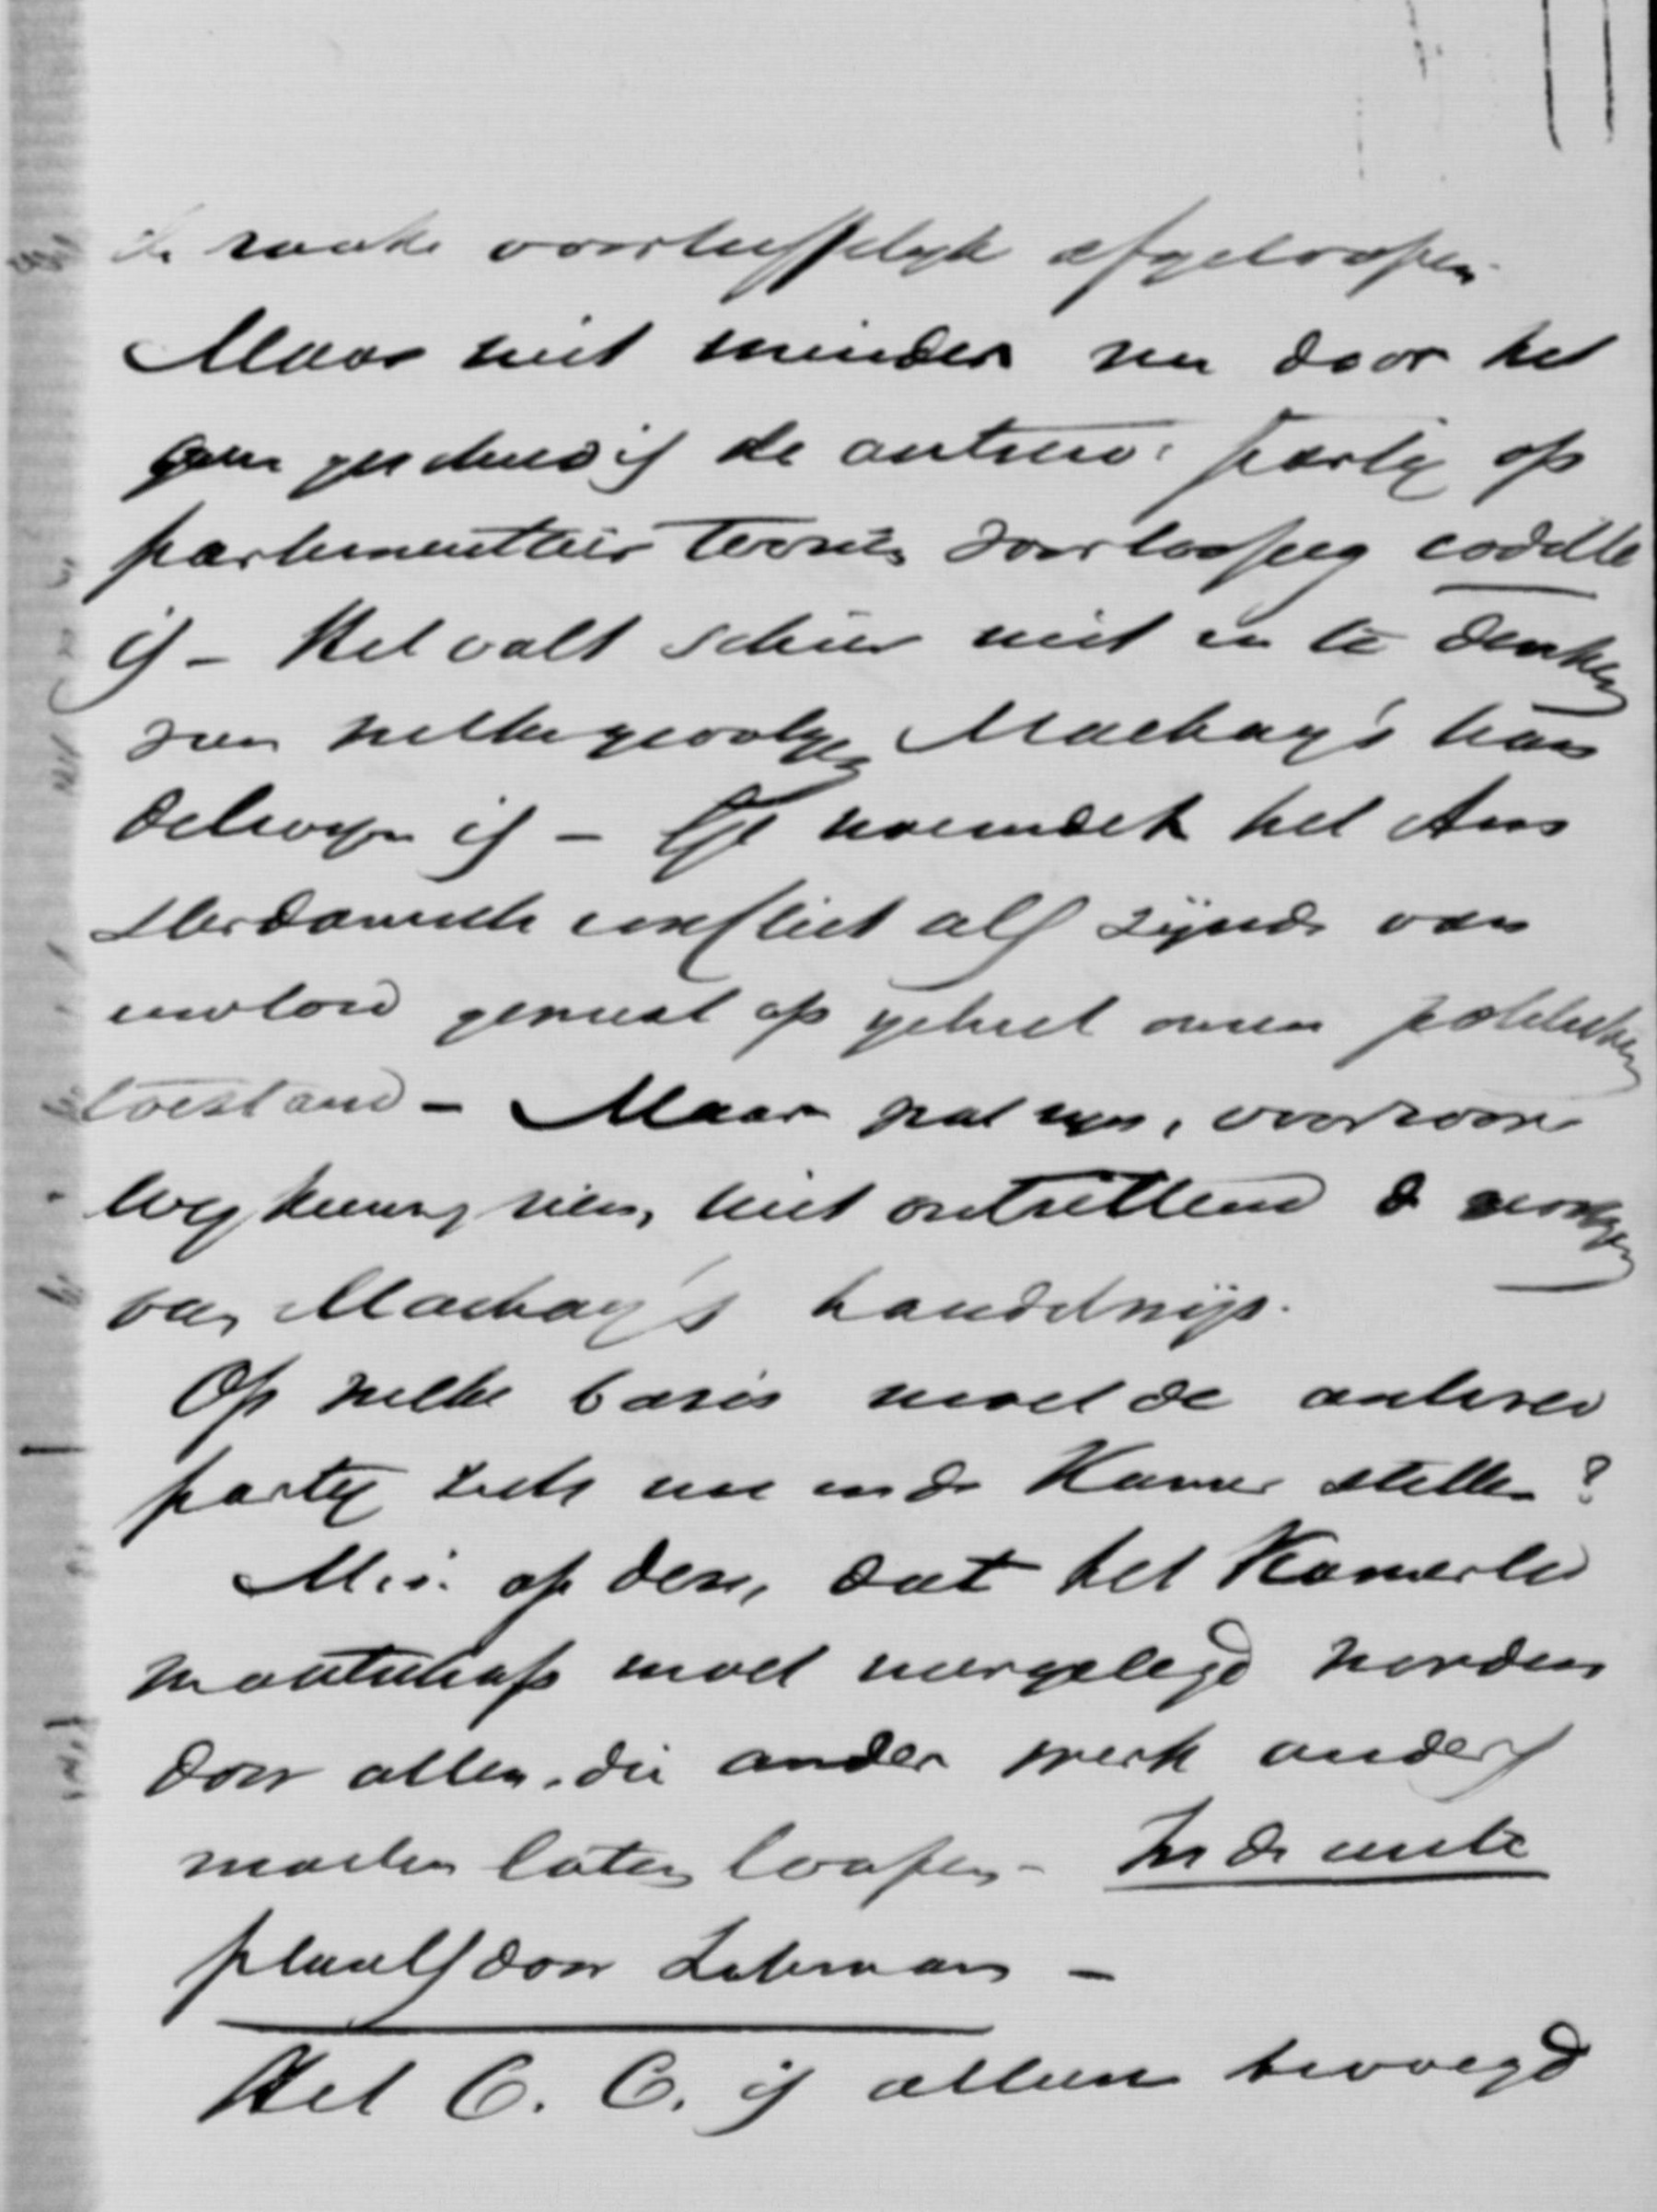 de zaak voortreffelijk afgeloopen.
Maar niet minder nu door het
geen geschied is de antirev. partij op
parlementair terrein voorloopig caduc
is – Het valt schier niet in te denken
van welke gevolgen Mackay's han
delwijs is – Gij noemdet het Am
sterdamsche conflict als zijnde van
invloed geweest op geheel onzen politieken
toestand – Maar wat nijs, voorzoo
wij kunnen zien, niet ontzettend de gevolgen
van Mackay's handelwijs.
Op welke basis moet de antirev
partij zich nu in de Kamer stellen?
M.i. op deze, dat het Kamerlid
maatschap moet neergelegd worden
door allen, die ander werk anders
moeten laten loopen – In de eerste
plaats door Lohman –
Het C. C. is alleen bevoegd